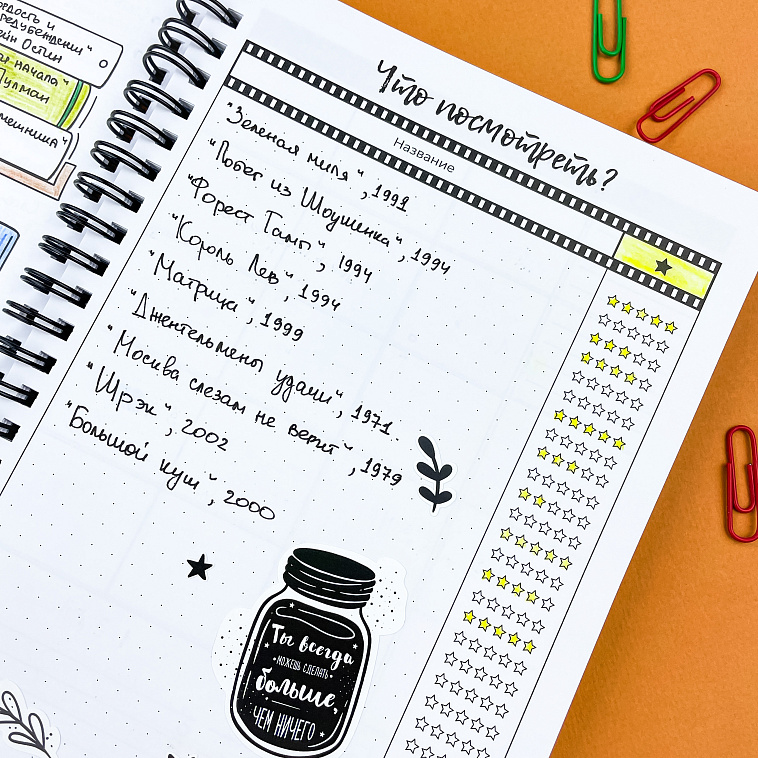 рдость и
редубеждении"
ейн Остин
начала"
Пулман
мешника"
Что посмотреть?
Название
"Зеленая миля", 1991
"Побег из Шоушенка", 1994
"Форест Гамп", 1994
"Король Лев", 1994
"Матрица", 1999
"Джентельмены удачи", 1971
"Москва слезам не верит", 1979
"Шрэк", 2002
"Большой куш", 2000
Ты всегда
можешь сделать
больше,
чем ничего